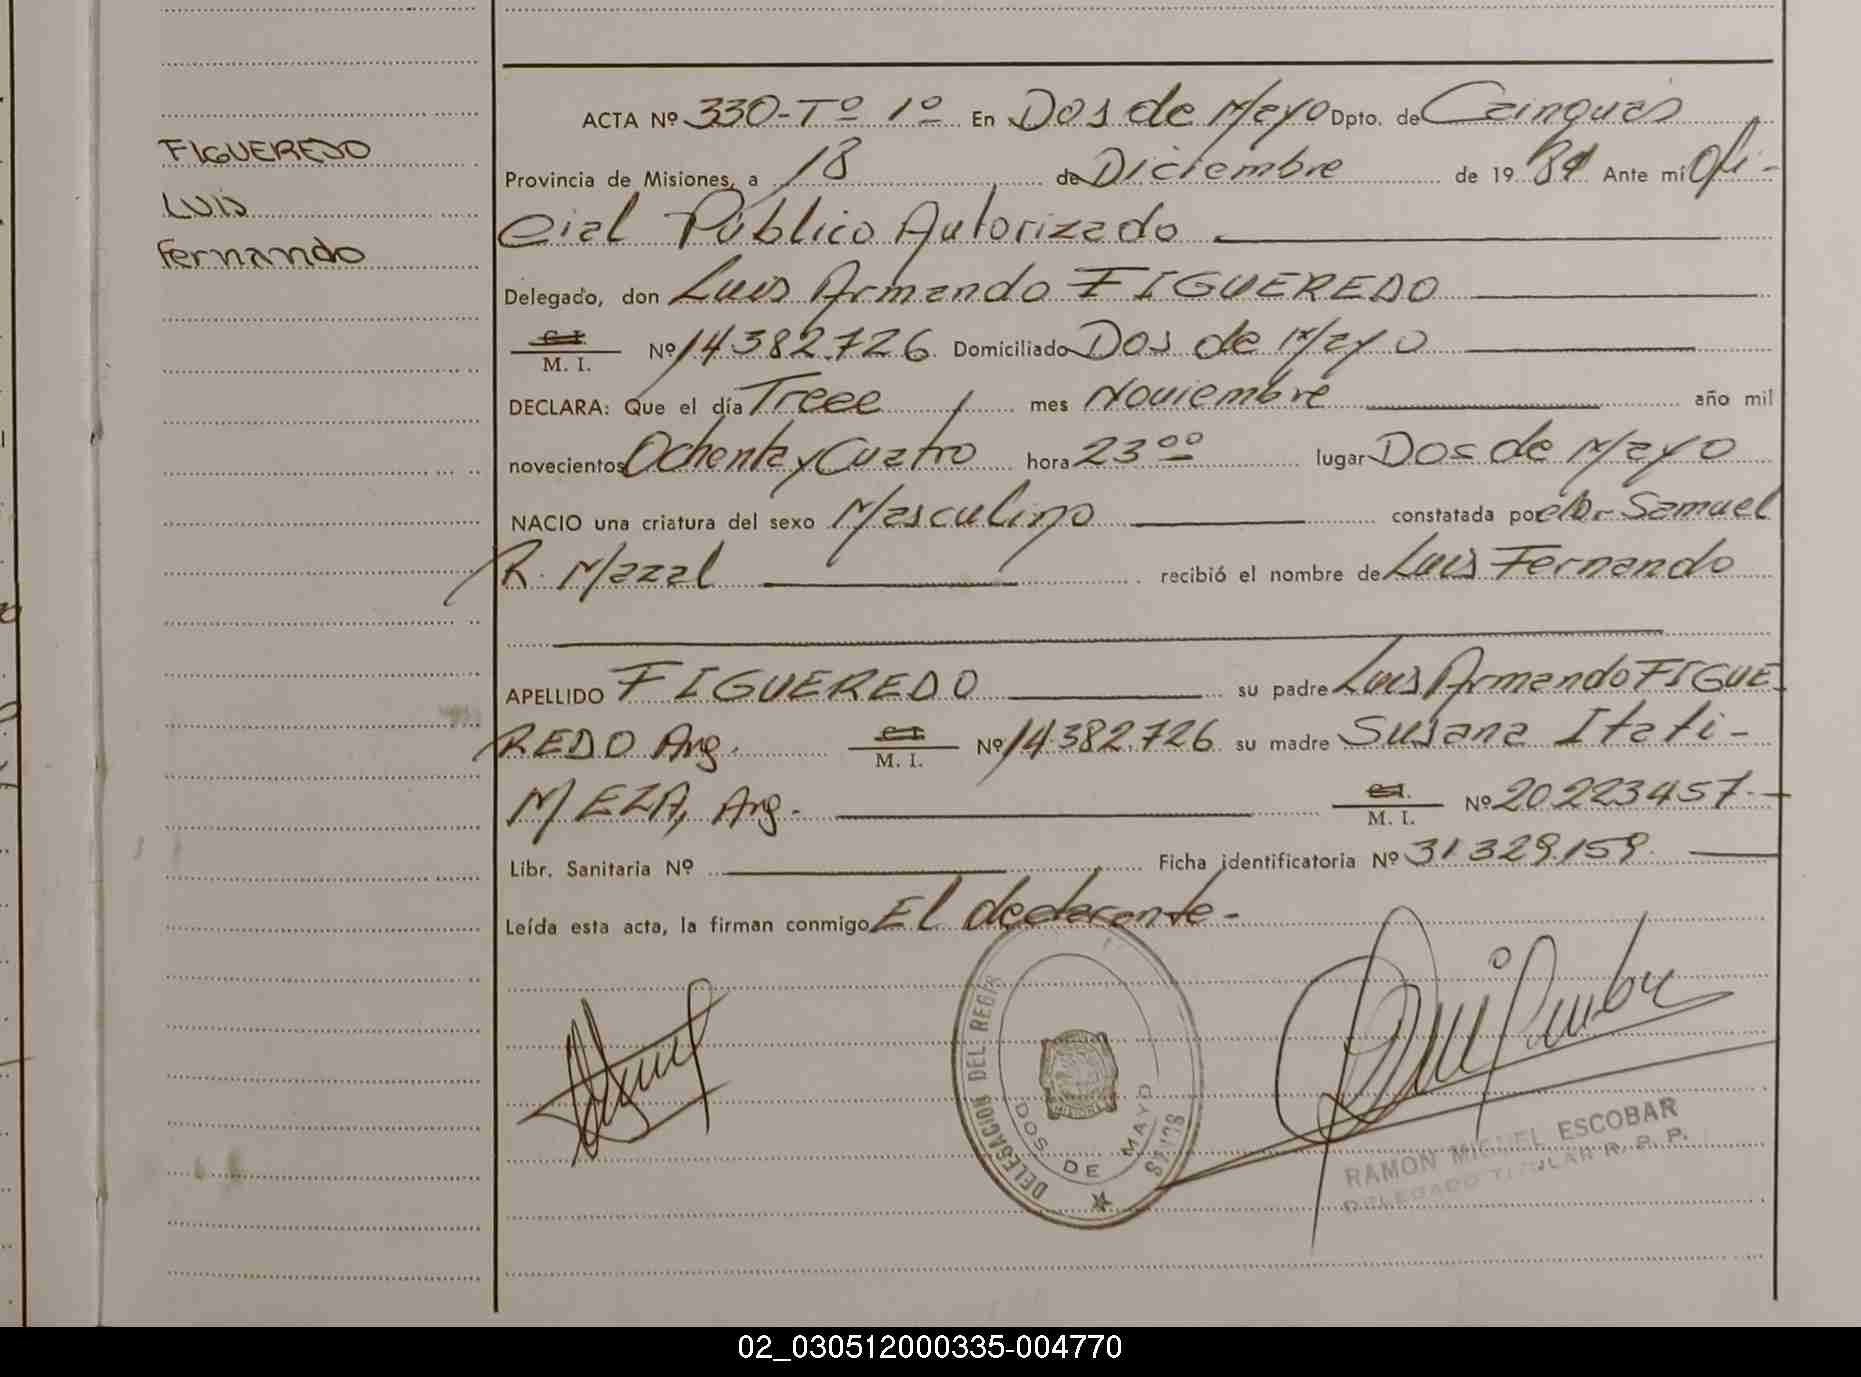 FIGUEREDO
LUIS
Fernando
ACTA Nº 330-Tº 1º En Dos de Mayo Dpto. de Cainguas
Provincia de Misiones, a 18 de Diciembre de 1984 Ante mi Ofi-
cial Público Autorizado
Delegado, don Luis Armando FIGUEREDO
C.I. M. I. Nº 14.382.726 Domiciliado Dos de Mayo
DECLARA: Que el día Trece mes Noviembre año mil
novecientos Ochenta y Cuatro hora 23ºº lugar Dos de Mayo
NACIO una criatura del sexo Masculino constatada por el Dr. Samuel
R. Mazal recibió el nombre de Luis Fernando
APELLIDO FIGUEREDO su padre Luis Armando FIGUE
REDO Arg. C.I. M. I. Nº 14.382.726 su madre Susana Itati-
MEZA, Arg.- C.I. M. I. Nº 20.223.457.-
Libr. Sanitaria Nº Ficha identificatoria Nº 31.329.159.
Leída esta acta, la firman conmigo El declarante-
DELEGACION DEL REGIS
DOS DE MAYO
RAMON MIGUEL ESCOBAR
DELEGADO TITULAR R. P. P.
02_030512000335-004770